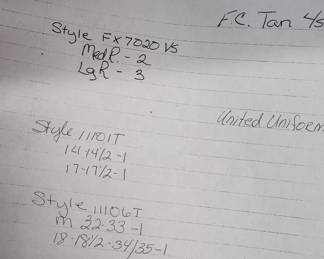 F.C. Tan 4/s
Style FX7020 VS
Med R. - 2
Lg R - 3
United Uniform
Style 11101T
14-14 1/2 - 1
17-17 1/2 - 1
Style 11106T
m 32-33 - 1
18-18 1/2 - 34/35 - 1